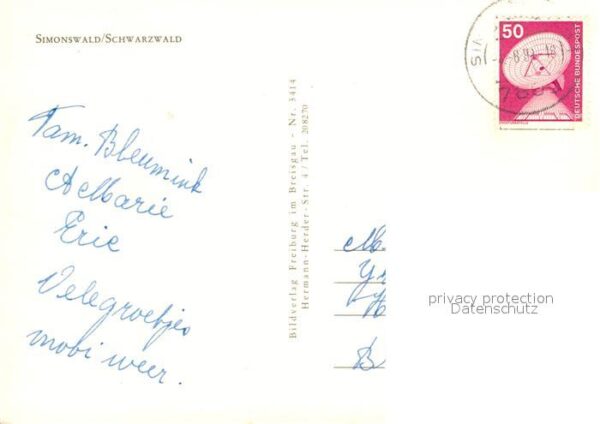 SIMONSWALD/SCHWARZWALD
Fam. Bleumink
AcMarie
Eric
Velegroetjes
mobi weer.
Bildverlag Freiburg im Breisgau - Nr. 3414
Hermann-Herder-Str. 4 / Tel. 208270
50
DEUTSCHE BUNDESPOST
M.
B
privacy protection
Datenschutz